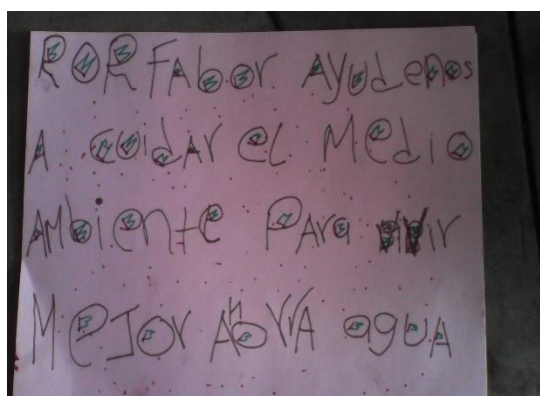 ROR FAbor AyudeNos
A cuidAr el Medio
AMbiente PARA vivir
MeJor AhorrA aguA